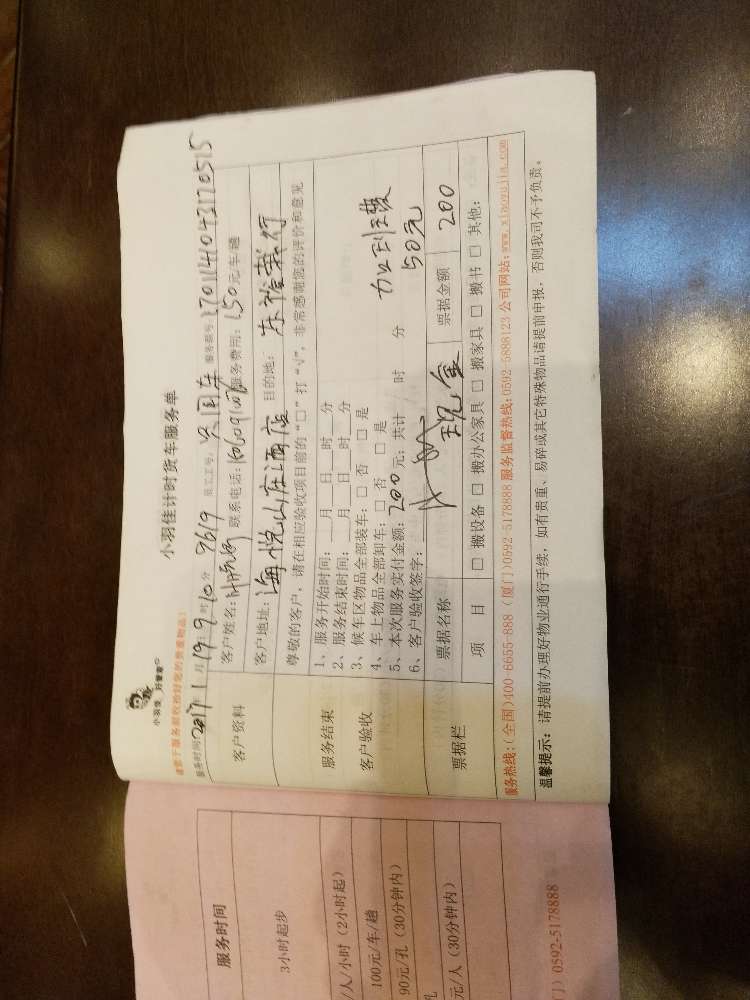 小羽佳计时货车服务单
小羽佳 好管家
请您于服务前收拾好您的贵重物品!
服务时间: 2017 1 月 19 9 时 10 分 9619 员工工号: 吴国东 服务票号: 1701141043170515
客户资料
客户姓名: 联系电话: 服务费用: 150 元/车/趟
客户地址: 海悦山庄酒店 目的地: 东裕载行
尊敬的客户,请在相应验收项目前的“□”打“√”,非常感谢您的评价和意见
服务结束
客户验收
1、服务开始时间: 月 日 时 分
2、服务结束时间: 月 日 时 分
3、候车区物品全部装车: □ 否 □ 是
4、车上物品全部卸车: □ 否 □ 是
5、本次服务实付金额: 200 元; 共计 时 分
6、客户验收签字:
加到三楼
50元
票据栏
票据名称 现金 票据金额 200
项 目 □ 搬设备 □ 搬办公家具 □ 搬家具 □ 搬书 □ 其他:
服务热线:(全国)400-6655-888 (厦门)0592-5178888 服务监督热线:0592-5898123 公司网站:www.xiaoyujia.com
温馨提示: 请提前办理好物业通行手续,如有贵重、易碎或其它特殊物品请提前申报,否则我司不予负责。
服务时间
3小时起步
/人/小时(2小时起)
100元/车/趟
90元/孔(30分钟内)
孔
元/人(30分钟内)
门)0592-5178888